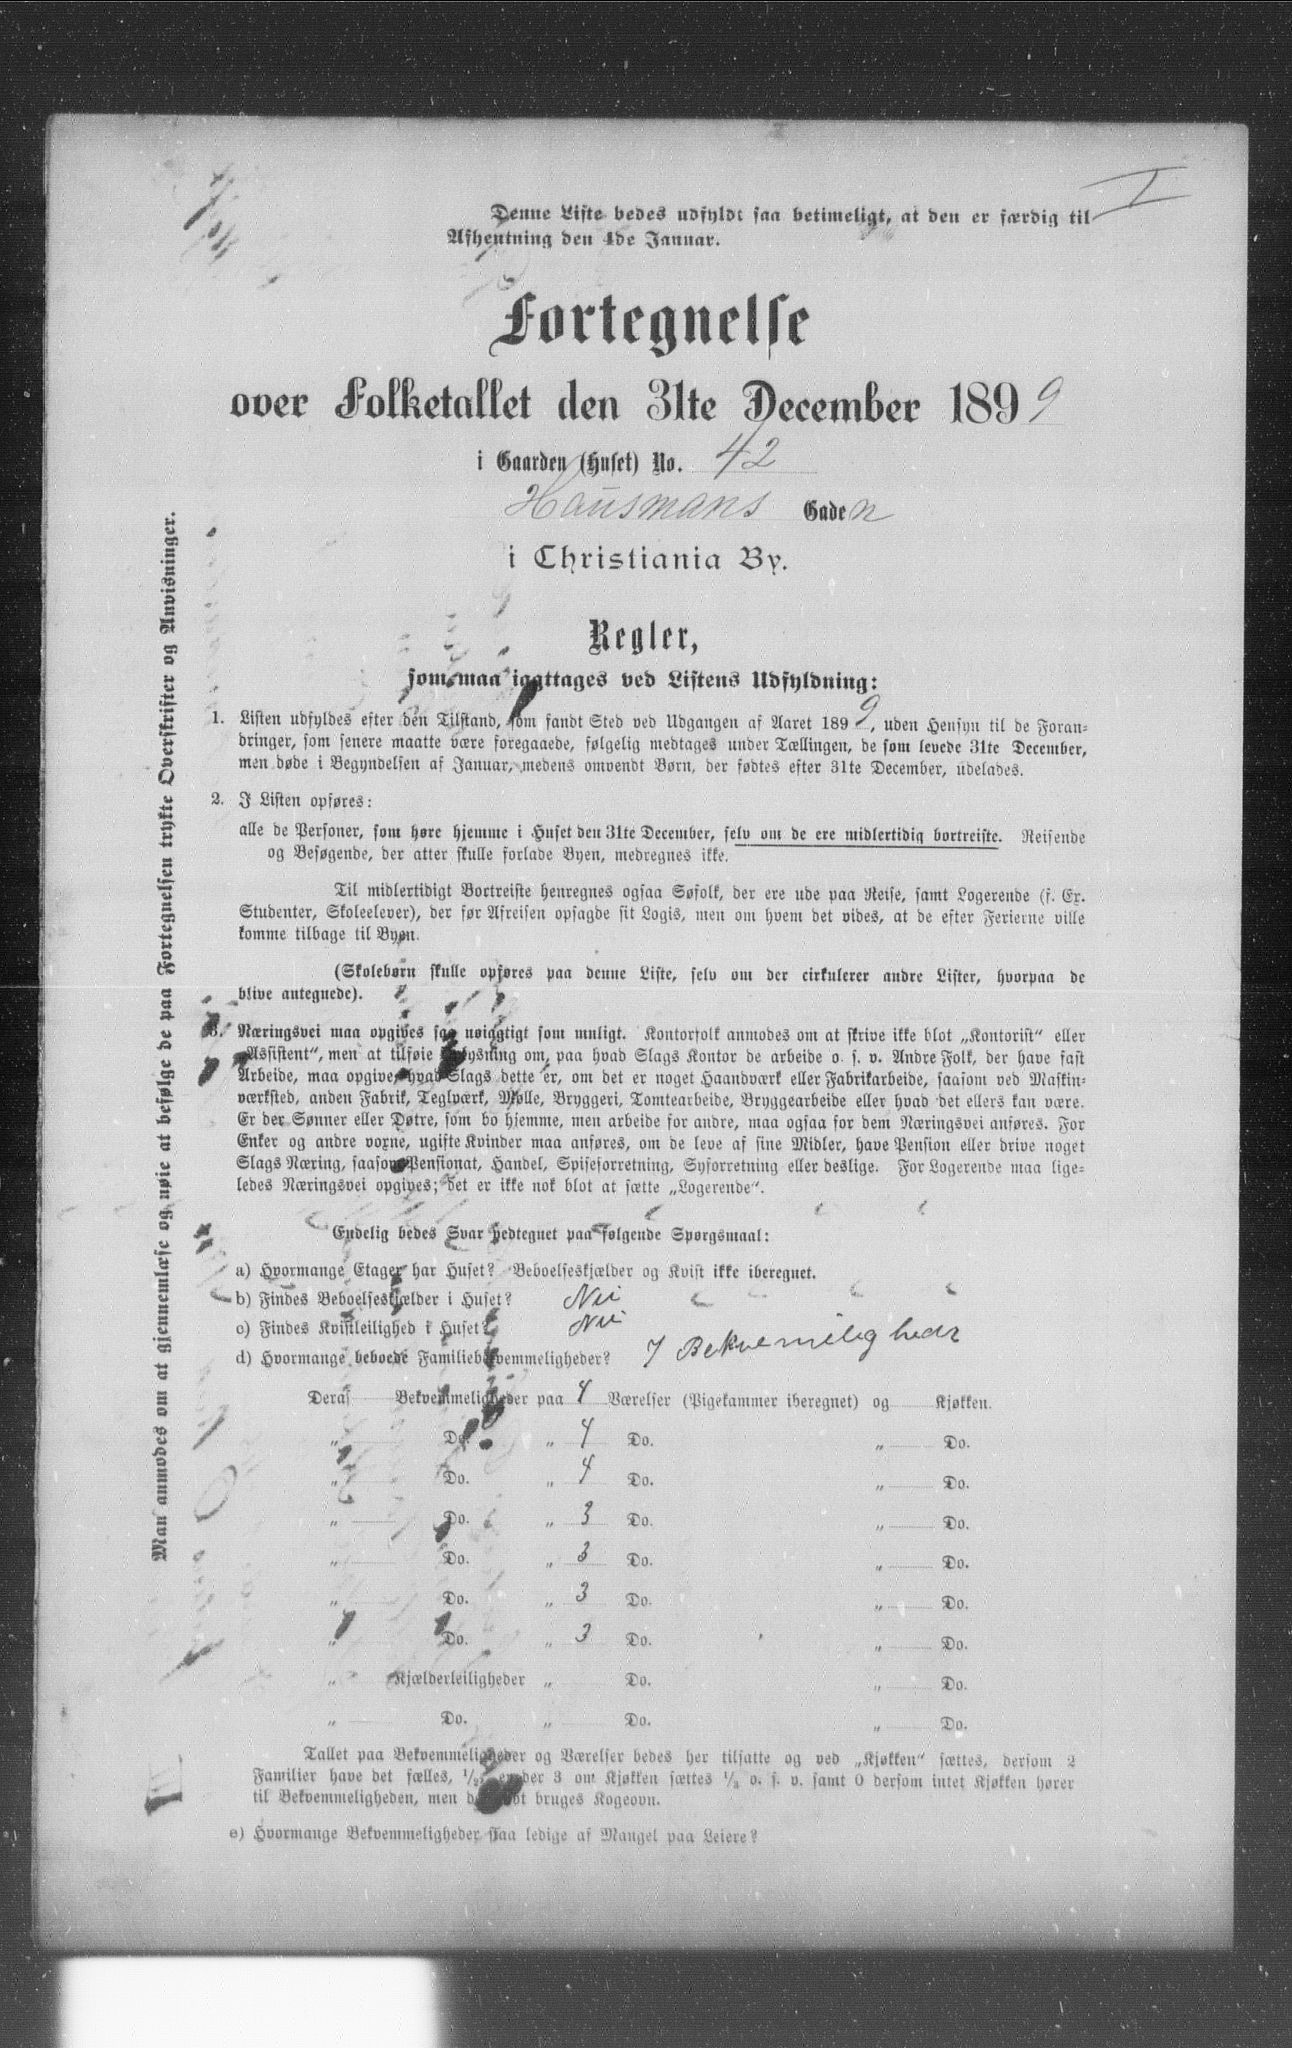 I
Denne Liste bedes udfyldt saa betimeligt, at den er færdig til
Afhentning den 4de Januar.
Fortegnelse
over Folketallet den 31te December 1899
i Gaarden (Huset) No. 42
Hausmans Gaden
i Christiania By.
Regler,
som maa iagttages ved Listens Udfyldning:
1. Listen udfyldes efter den Tilstand, som fandt Sted ved Udgangen af Aaret 1899, uden Hensyn til de Foran-
dringer, som senere maatte være foregaaede, følgelig medtages under Tællingen, de som levede 31te December,
men døde i Begyndelsen af Januar, medens omvendt Børn, der fødtes efter 31te December, udelades.
2. I Listen opføres:
alle de Personer, som høre hjemme i Huset den 31te December, selv om de ere midlertidig bortreiste. Reisende
og Besøgende, der atter skulle forlade Byen, medregnes ikke.
Til midlertidigt Bortreiste henregnes ogsaa Søfolk, der ere ude paa Reise, samt Logerende (f. Ex.
Studenter, Skoleelever), der før Afreisen opsagde sit Logis, men om hvem det vides, at de efter Ferierne ville
komme tilbage til Byen.
(Skolebørn skulle opføres paa denne Liste, selv om der cirkulerer andre Lister, hvorpaa de
blive antegnede).
3. Næringsvei maa opgives saa nøiagtigt som muligt. Kontorfolk anmodes om at skrive ikke blot „Kontorist“ eller
„Assistent“, men at tilføie Oplysning om, paa hvad Slags Kontor de arbeide o. s. v. Andre Folk, der have fast
Arbeide, maa opgive, hvad Slags dette er, om det er noget Haandværk eller Fabrikarbeide, saasom ved Maskin-
værksted, anden Fabrik, Teglværk, Mølle, Bryggeri, Tomtearbeide, Bryggearbeide eller hvad det ellers kan være.
Er der Sønner eller Døtre, som bo hjemme, men arbeide for andre, maa ogsaa for dem Næringsvei anføres. For
Enker og andre voxne, ugifte Kvinder maa anføres, om de leve af sine Midler, have Pension eller drive noget
Slags Næring, saasom Pensionat, Handel, Spiseforretning, Syforretning eller deslige. For Logerende maa lige-
ledes Næringsvei opgives; det er ikke nok blot at sætte „Logerende“.
Endelig bedes Svar vedtegnet paa følgende Spørgsmaal:
a) Hvormange Etager har Huset? Beboelseskjælder og Kvist ikke iberegnet.
b) Findes Beboelseskjælder i Huset? Nei
c) Findes Kvistleilighed i Huset? Nei
d) Hvormange beboede Familiebekvemmeligheder? 7 Bekvemmeligheder
Deraf Bekvemmeligheder paa 4 Værelser (Pigekammer iberegnet) og Kjøkken.
„ Do. „ 4 Do. „ Do.
„ Do. „ 4 Do. „ Do.
„ Do. „ 3 Do. „ Do.
„ Do. „ 3 Do. „ Do.
„ Do. „ 3 Do. „ Do.
„ Do. „ 3 Do. „ Do.
„ Kjælderleiligheder „ Do. „ Do.
„ Do. „ Do. „ Do.
Tallet paa Bekvemmeligheder og Værelser bedes her tilsatte og ved „Kjøkken“ sættes, dersom 2
Familier have det fælles, 1/2, er der 3 om Kjøkken sættes 1/3 o. s. v. samt 0 dersom intet Kjøkken hører
til Bekvemmeligheden, men bruges Kogeovn.
e) Hvormange Bekvemmeligheder staa ledige af Mangel paa Leiere?
Man anmodes om at gjennemlæse og nøie at befølge de paa Fortegnelsen trykte Overskrifter og Anvisninger.